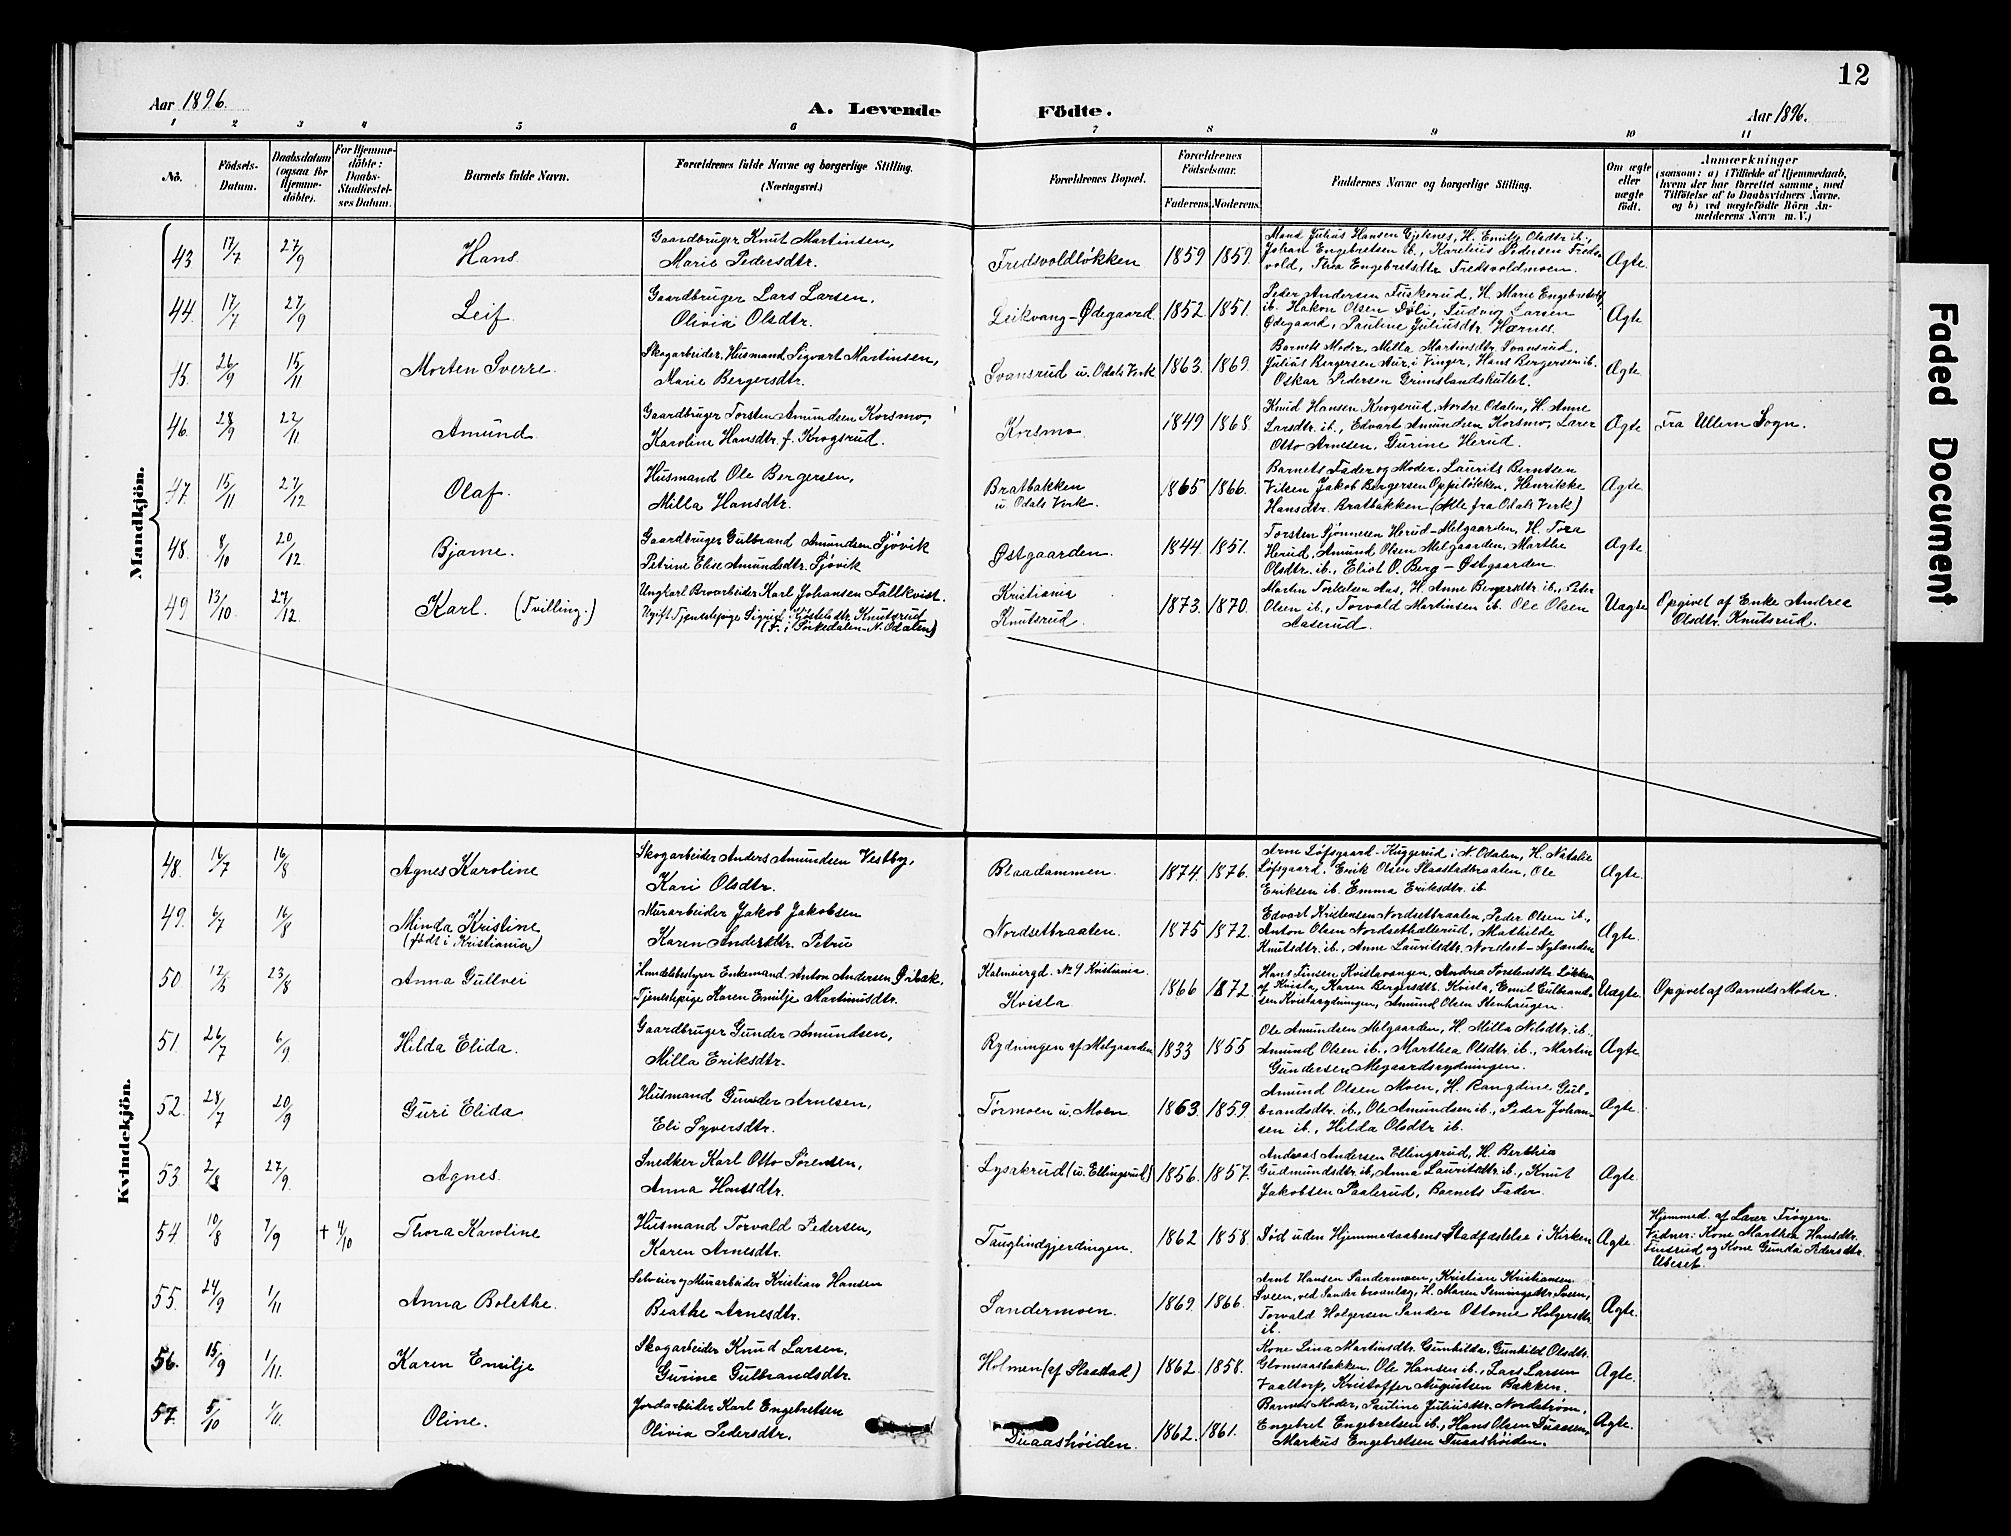 12
Aar 1896.
A. Levende Födte.
Aar 1896.
1 2 3 4 5 6 7 8 9 10 11
No.
Födsels-Datum.
Daabsdatum (ogsaa for Hjemmedöbte).
For Hjemmedöbte: Daabs-Stadfæstelses Datum.
Barnets fulde Navn.
Forældrenes fulde Navne og borgerlige Stilling.
(Næringsvei.)
Forældrenes Bopæl.
Forældrenes Födselsaar.
Faderens. Moderens.
Faddernes Navne og borgerlige Stilling.
Om ægte eller uægte födt.
Anmærkninger
(saasom: a) i Tilfælde af Hjemmedaab,
hvem der har forrettet samme, med
Tilföielse af to Daabsvidners Navne.
og b) ved uægtefödte Börn An-
melderens Navn m. V.)
Mandkjön.
43 17/7 27/9 Hans
Gaardbruger Knut Martinsen,
Marie Pedersdtr.
Fredsvoldløkken 1859 1859.
Mand Julius Hansen Gjelnes, H. Emilje Olsdtr ib.,
Johan Engebretsen ib., Karelius Pedersen Freds-
vold, Thea Engebretsdtr Fredsvoldmoen.
Ægte
44. 17/7 27/9 Leif.
Gaardbruger Lars Larsen,
Olivia Olsdtr.
Leikvang-Ødegaard. 1852 1851.
Peder Andersen Fuskerud, H. Marie Engebretsdtr
ib. Hakon Olsen Døli, Ludvig Larsen
Ødegaard, Pauline Juliusdtr. Hærnes.
Ægte
15. 26/9 15/11 Morten Sverre.
Skogarbeider, Husmand Sigvart Martinsen,
Marie Bergersdtr.
Svansrud u. Odals Verk 1863. 1869.
Barnets Moder, Milla Martinsdtr Svansrud.
Julius Bergersen Aur, i Vinger, Hans Bergersen ib.
Oskar Pedersen Grimslandshullet.
Ægte
46. 28/9 22/11 Amund
Gaardbruger Torsten Amundsen Korsmo,
Karoline Hansdtr. f. Krogsrud.
Korsmo 1849 1868.
Knud Hansen Krogsrud, Nordre Odalen, H. Anne
Larsdtr. ib., Edvart Amundsen Korsmo, Lærer
Otto Arnesen, Gurine Herud.
Ægte Fra Ullern Sogn.
47. 15/11 27/12 Olaf.
Husmand Ole Bergersen,
Milla Hansdtr.
Bratbakken
u. Odals Verk. 1865 1866.
Barnets Fader og Moder, Laurits Berntsen
Viken Jakob Bergersen Oppiløkken, Henrikke
Hansdtr. Bratbakken (Alle fra Odals Verk)
Ægte
48. 8/10 20/12 Bjarne.
Gaardbruger Gulbrand Amundsen Sjøvik
Petrine Elise Amundsdtr. Sjøvik
Østgaarden. 1844 1851.
Torsten Gjønnesen Herud-Melgaarden, H. Tora
Herud, Amund Olsen Melgaarden, Marthe
Olsdtr. ib., Eliot O. Berg - Østgaarden.
Ægte
49. 13/10 27/12. Karl. (Tvilling.)
Ungkarl Broarbeider Karl Johansen Fallkvist.
Ugift Tjenestepige Sigrid Gjøstelsdtr. Knutsrud
(F. i Sørkedalen-N. Odalen)
Kristiania
Knutsrud. 1873. 1870.
Martin Torkelsen Aas, H. Anne Bergersdtr. ib., Peter
Olsen ib., Torvald Martinsen ib. Ole Olsen
Aaserud.
Uægte
Opgivet af Enke Andrea
Olsdtr. Knutsrud.
Kvindekjön.
48. 16/7 16/8 Agnes Karoline
Skogarbeider Anders Amundsen Vestby,
Kari Olsdtr.
Blaadammen. 1874. 1876.
Arne Løfsgaard-Kuggerud i N. Odalen, H. Natalie
Løfsgaard, Erik Olsen Slaastadbraaten, Ole
Eriksen ib. Emma Eriksdtr. ib
Ægte.
49. 6/7 16/8 Minda Kristine
(født i Kristiania)
Murarbeider Jakob Jakobsen
Karen Andersdtr. Petru
Nordsetbraaten. 1875 1872.
Edvart Kristensen Nordsetbraaten, Peder Olsen ib.,
Anton Olsen Nordsethællerud, Mathilde
Knutsdtr. ib., Anne Lauritsdtr. Nordset-Nylænden
Ægte.
50. 12/5 23/8 Anna Gullvei
Handelsbestyrer Enkemand Anton Andersen Øibak,
Tjenestepige Karen Emilje Martinusdtr.
Kalmeiergd. No 9 Kristiania.
Kvisla 1866 1872.
Hans Finsen Kvislavangen, Andrea Torstensdtr Løkken
af Kvisla, Karen Bergersdtr. Kvisla, Emil Gulbrand-
sen Kvislarydningen, Amund Olsen Stenhaugen.
Uægte. Opgivet af Barnets Moder.
51. 26/7 6/9 Hilda Elida.
Gaardbruger Gunder Amundsen,
Milla Eriksdtr.
Rydningen af Melgaarden 1833 1855
Ole Amundsen Melgaarden, H. Milla Nilsdtr. ib.
Amund Olsen ib., Marthea Olsdtr ib., Martin
Gundersen Megaardsrydningen.
Ægte.
52. 28/7 20/9 Guri Elida
Husmand Gunder Arnesen,
Eli Syversdtr.
Tørmoen u. Moen 1863. 1859.
Amund Olsen Moen, H. Rangdine Gul-
brandsdtr. ib., Ole Amundsen ib., Peder Johan-
sen ib., Hilda Olsdtr ib.
Ægte.
53 2/8 27/9. Agnes.
Snedker Karl Otto Sørensen,
Anna Hansdtr.
Lysakrud (u. Ellingsrud) 1856. 1857.
Andreas Andersen Ellingsrud, H. Berthea
Gudmundsdtr ib, Anna Lauritsdtr. ib., Knut
Jakobsen Paalerud, Barnets Fader.
Ægte.
54 10/8 7/9 † 4/10 Thora Karoline
Husmand Torvald Pedersen,
Karen Arnesdtr.
Tauglindgjerdingen. 1862 1858.
Død uden Hjemmedaabens Stadfæstelse i Kirken
Ægte.
Hjemmed. af Lærer Frøyen.
Vidner: Kone Marthea Hansdtr.
Finsrud og Kone Gunda Pedersdtr.
Ubeset.
55. 24/9 1/11 Anna Bolethe.
Selveier og Murarbeider Kristian Hansen
Beathe Arnesdtr.
Sandermoen. 1869. 1866.
Arnt Hansen Sandermoen, Kristian Kristiansen
Sveen, ved Sander broanlæg, H. Maren Semingsdtr. Sveen,
Torvald Holgersen Sander Ottonie Holgersdtr.
ib.
Ægte.
56. 15/9 1/11. Karen Emilje
Skogarbeider Knud Larsen,
Gurine Gulbrandsdtr.
Holmen (af Slaastad) 1862. 1858.
Kone Lina Martinsdtr. Gunhilda, Gunhild Olsdtr.
Glomsaasbakken, Ole Hansen ib., Lars Larsen
Vaaltorp, Kristoffer Augustsen Bakken.
Ægte.
57. 5/10 1/11. Oline.
Jordarbeider Karl Engebretsen
Olivia Pedersdtr.
Duaashøiden. 1862. 1861.
Barnets Moder, Pauline Juliusdtr. Nordstrøm,
Engebret Engebretsen ib., Hans Olsen Duaasen,
Markus Engebretsen Duaashøiden.
Ægte.
Faded Document